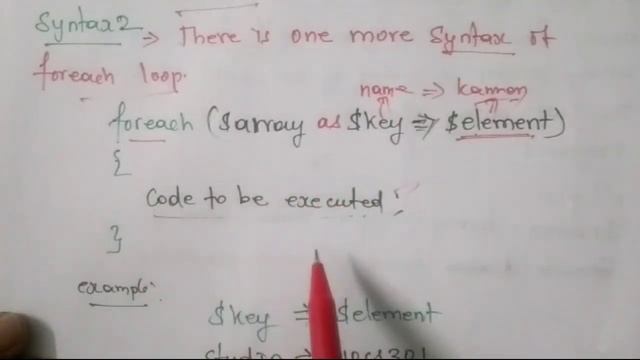 Syntax2 → There is one more Syntax of
foreach loop.
name ⇒ kannan
foreach ($array as $key ⇒ $element)
{
Code to be executed;
}
example:
$key ⇒ $element